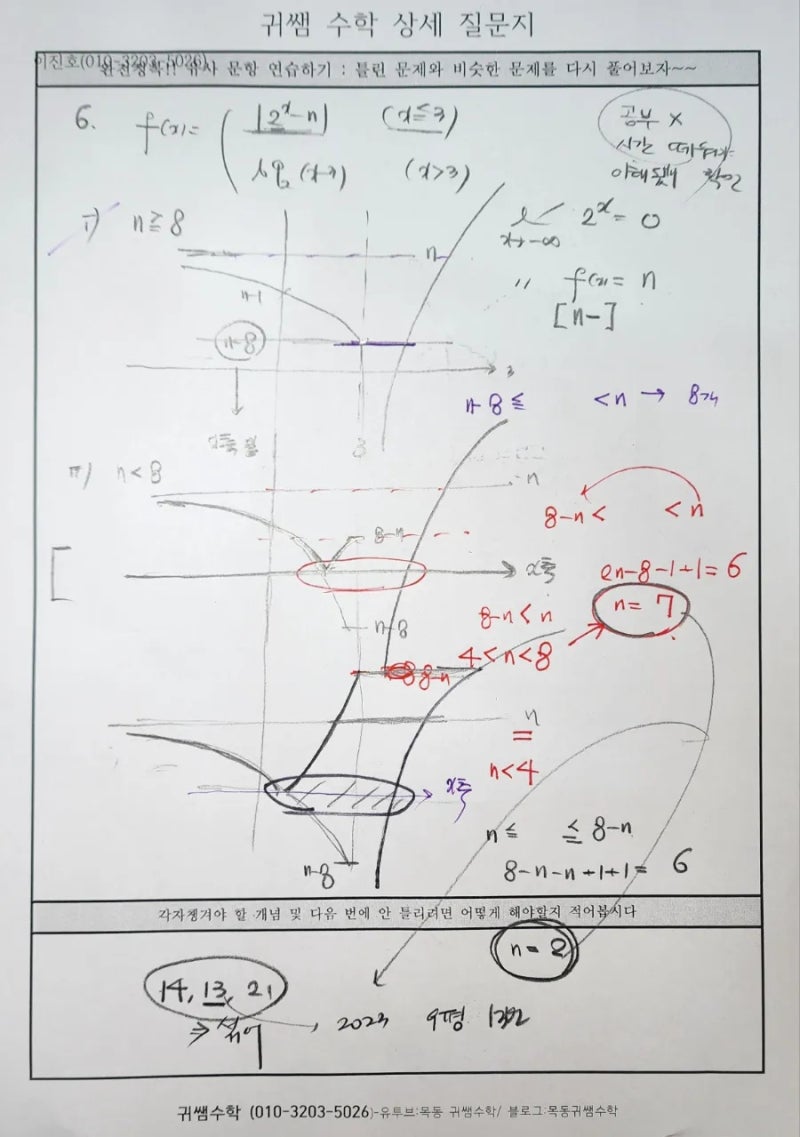 귀쌤 수학 상세 질문지
이진호(010-3203-5026)
완전정복!! 유사 문항 연습하기 : 틀린 문제와 비슷한 문제를 다시 풀어보자~~
6. f(x)= |2^x-n| (x≤3)
(x>3)
공부 x
시간
확인
i) n≧8
n
n-1
n-8
3
3
x→-∞ 2^x = 0
〃 f(x)= n
[n-]
n-8≦ <n → 8개
ii) n<8
n
8-n
x축
n-8
8-n< <n
2n-8-1+1=6
n=7
8-n<n
4<n<8
8-n
n
=
n<4
x축
n-8
n≦ ≦8-n
8-n-n+1+1= 6
각자챙겨야 할 개념 및 다음 번에 안 틀리려면 어떻게 해야할지 적어봅시다
n=2
14, 13, 21
⇒ 섞어
2023 9평
귀쌤수학 (010-3203-5026)-유투브:목동 귀쌤수학/ 블로그:목동귀쌤수학